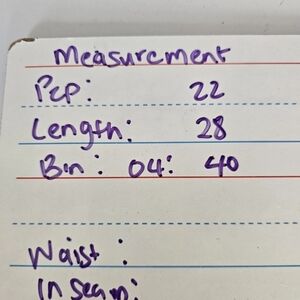 Measurement
Pcp: 22
Length: 28
Bin: 04: 40
Waist :
Inseam: